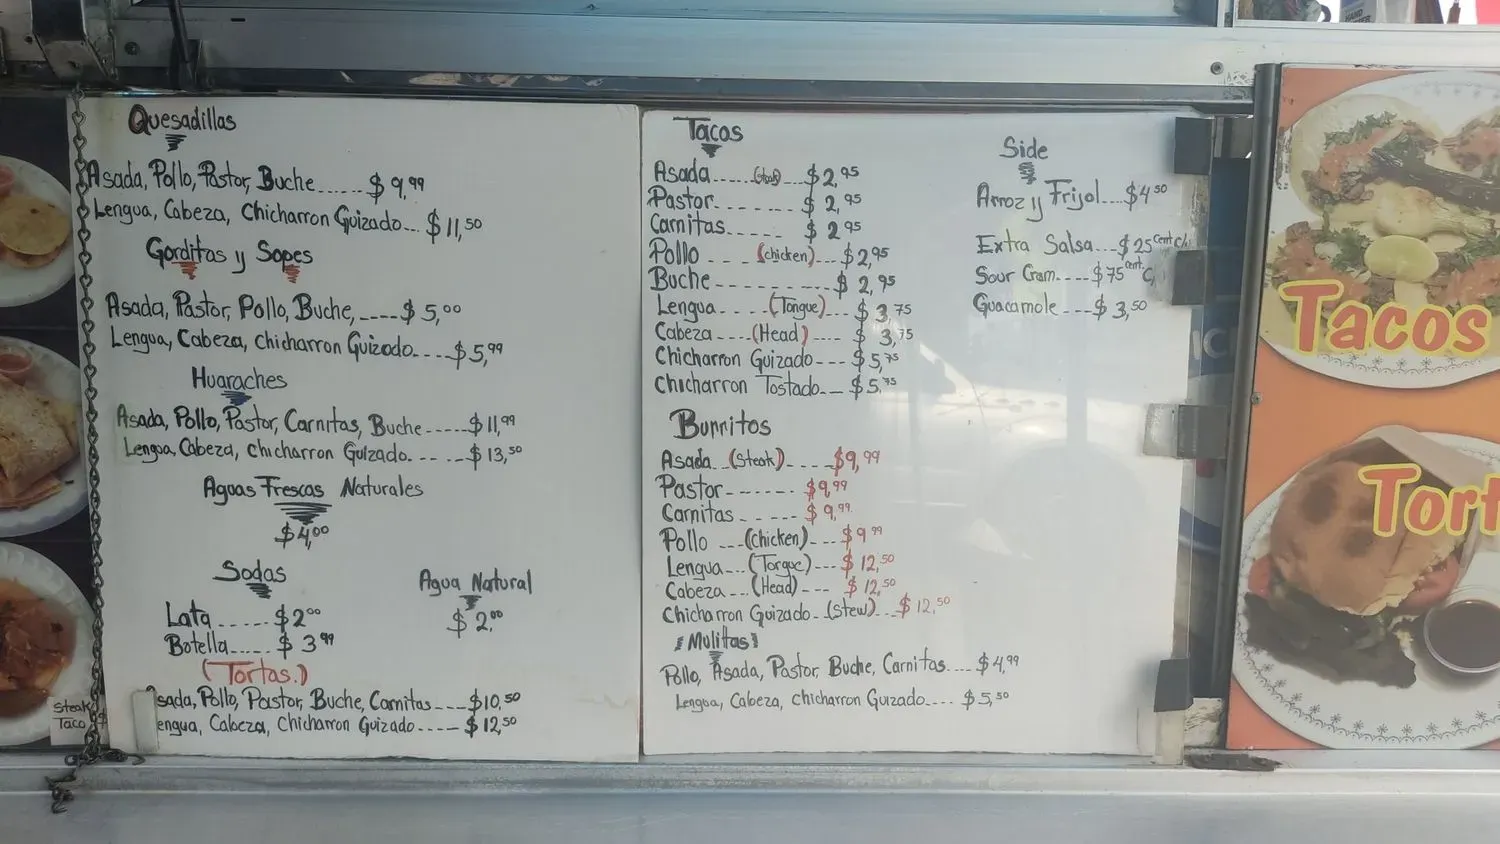 Quesadillas
Asada, Pollo, Pastor, Buche...... $9,99
Lengua, Cabeza, Chicharron Guizado... $11,50
Gorditas y Sopes
Asada, Pastor, Pollo, Buche,.----$5,00
Lengua, Cabeza, Chicharron Guizado....$5,99
Huaraches
Asada, Pollo, Pastor, Carnitas, Buche-----$11,99
Lengua, Cabeza, Chicharron Guizado. -- ...-$13,50
Aguas Frescas Naturales
$4,00
Sodas
Lata ..... $2,00
Botella..... $3,99
Agua Natural
$2,00
(Tortas.)
Asada, Pollo, Pastor, Buche, Carnitas---$10,50
engua, Cabeza, Chicharron Guizado----$12,50
Steak
Taco $
Tacos
Asada.....(steak)...$2,95
Pastor.------ $2,95
Carnitas----- $2,95
Pollo -- - (chicken)...$2,95
Buche--------- $2,95
Lengua....-(Tongue)... $3,75
Cabeza----(Head)---- $3,75
Chicharron Guizado--- $5,75
Chicharron Tostado-- $5,75
Burritos
Asada (Steak)....-$9,99
Pastor------ $9,99
Carnitas - - --- $9,99.
Pollo ---(chicken)--- $9,99
Lengua...(Torgue)--- $12,50
Cabeza...(Head)--- $12,50
Chicharron Guizado-(stew)...$12,50
Mulitas
Pollo, Asada, Pastor, Buche, Carnitas.... $4,99
Lengua, Cabeza, Chicharron Guizado.... $5,50
Side
Arroz y Frijol....$4,50
Extra Salsa...$25 Cent
Sour Cram....$75 cent.
Guacamole ...$3,50
Tacos
Tort